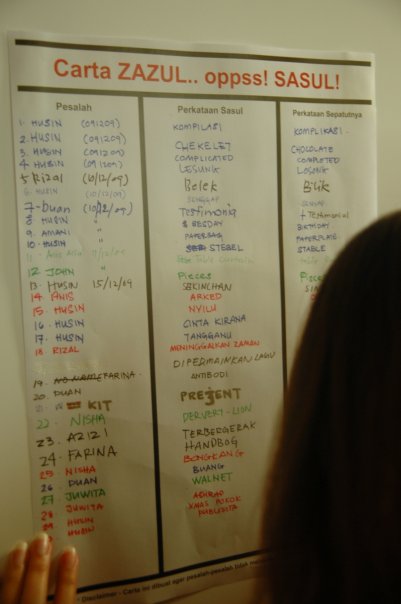 Carta ZAZUL.. oppss! SASUL!
Pesalah Perkataan Sasul Perkataan Sepatutnya
1. HUSIN (091209) KOMPILASI KOMPLIKASI
2. HUSIN (091209) CHEKELET CHOCOLATE
3. HUSIN (091209) COMPLICATED COMPLETED
4 HUSIN (091209) LESUNIK LOSUNIK
5 Rizal (10/12/09) Belek Bilik
6 HUSIN (10/12/09) SENGGAP
7 - Duan (10/12/09) Testimonia Testimonial
8 HUSIN " BESDAY BIRTHDAY
9. AMANI " PAPERBAG PAPERPLATE
10. HUSIN " STEBEL STABLE
11 11/12/09 Table
12 JOHN " Pieces
13- HUSIN 15/12/09 SEKINCHAN
14 ANIS ARKED
15 HUSIN NYILU
16 - HUSIN CINTA KIRANA
17 - HUSIN TANGGANU
18 RIZAL MENINGGALKAN ZAMAN
DIPERMAINKAN LAGU
19 - FARINA ANTIBODI
20. DUAN PRESENT
21 KIT PERVERT - LION
22 - NISHA TERBERGERAK
23 - AZIZI HANDBOG
24 - FARINA BONGKANG
25 - NISHA BUANG
26 - DUAN WALNET
27 - JUWITA ASHRAF
28 - JUWITA XMAS POKOK
29 - HUSIN PUBLISITA
HUSIN
Disclaimer - Carta ini dibuat agar pesalah-pesalah tidak